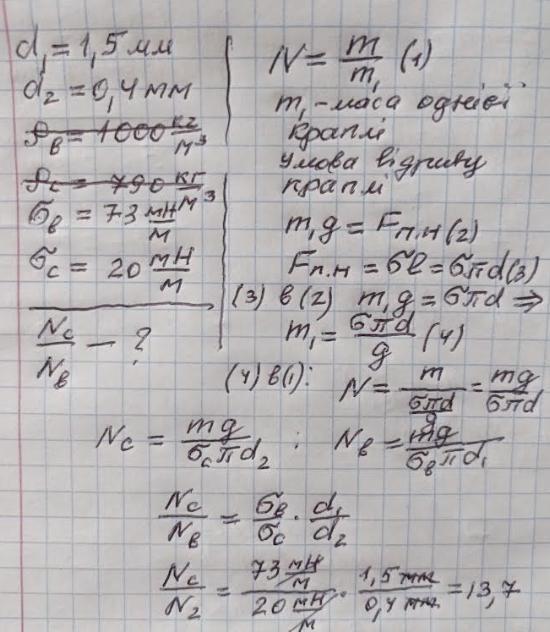 d₁ = 1,5 мм
d₂ = 0,4 мм
ρв = 1000 кг/м³
ρс = 790 кг/м³
σв = 73 мН/м
σс = 20 мН/м
Nс/Nв — ?
N = m/m₁ (1)
m₁ - маса однієї
краплі
умова відриву
краплі
m₁g = Fп.н (2)
Fп.н = σl = σπd (3)
(3) в (2) m₁g = σπd ⇒
m₁ = σπd/g (4)
(4) в (1): N = m/(σπd/g) = mg/σπd
Nс = mg/σсπd₂ ; Nв = mg/σвπd₁
Nс/Nв = σв/σс · d₁/d₂
Nс/N₂ = 73 мН/м / 20 мН/м · 1,5 мм/0,4 мм = 13,7